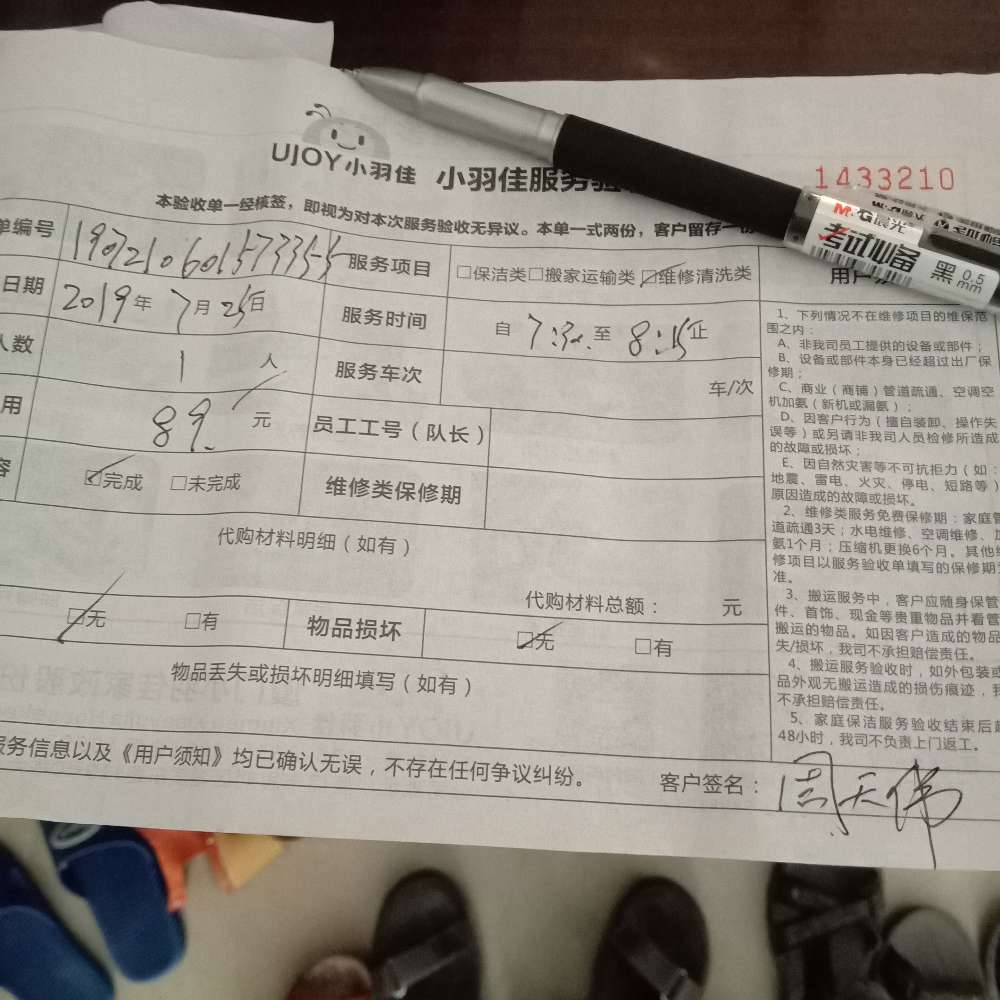 UJOY小羽佳 小羽佳服务验
1433210
本验收单一经核签，即视为对本次服务验收无异议。本单一式两份，客户留存一份
M&G晨光
考试必备
黑 0.5mm
单编号
服务项目 □保洁类□搬家运输类☑维修清洗类
日期 2019年7月25日
服务时间 自 7:30 至 8:15 止
人数 1 人
服务车次 车/次
用 89 元
员工工号（队长）
容 ☑完成 □未完成
维修类保修期
代购材料明细（如有）
代购材料总额： 元
☑无 □有 物品损坏 ☑无 □有
物品丢失或损坏明细填写（如有）
服务信息以及《用户须知》均已确认无误，不存在任何争议纠纷。 客户签名：周天伟
用户
1、下列情况不在维修项目的维保范
围之内：
A、非我司员工提供的设备或部件；
B、设备或部件本身已经超过出厂保
修期；
C、商业（商铺）管道疏通、空调空
机加氨（新机或漏氨）；
D、因客户行为（擅自装卸、操作失
误等）或另请非我司人员检修所造成
的故障或损坏；
E、因自然灾害等不可抗拒力（如：
地震、雷电、火灾、停电、短路等）
原因造成的故障或损坏。
2、维修类服务免费保修期：家庭管
道疏通3天；水电维修、空调维修、加
氨1个月；压缩机更换6个月。其他维
修项目以服务验收单填写的保修期为
准。
3、搬运服务中，客户应随身保管
件、首饰、现金等贵重物品并看管
搬运的物品。如因客户造成的物品
失/损坏，我司不承担赔偿责任。
4、搬运服务验收时，如外包装或
品外观无搬运造成的损伤痕迹，我
不承担赔偿责任。
5、家庭保洁服务验收结束后超
48小时，我司不负责上门返工。